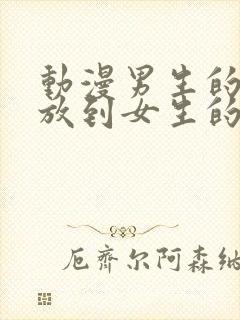 動漫男生的
放到女生的
厄齊尔阿森纳